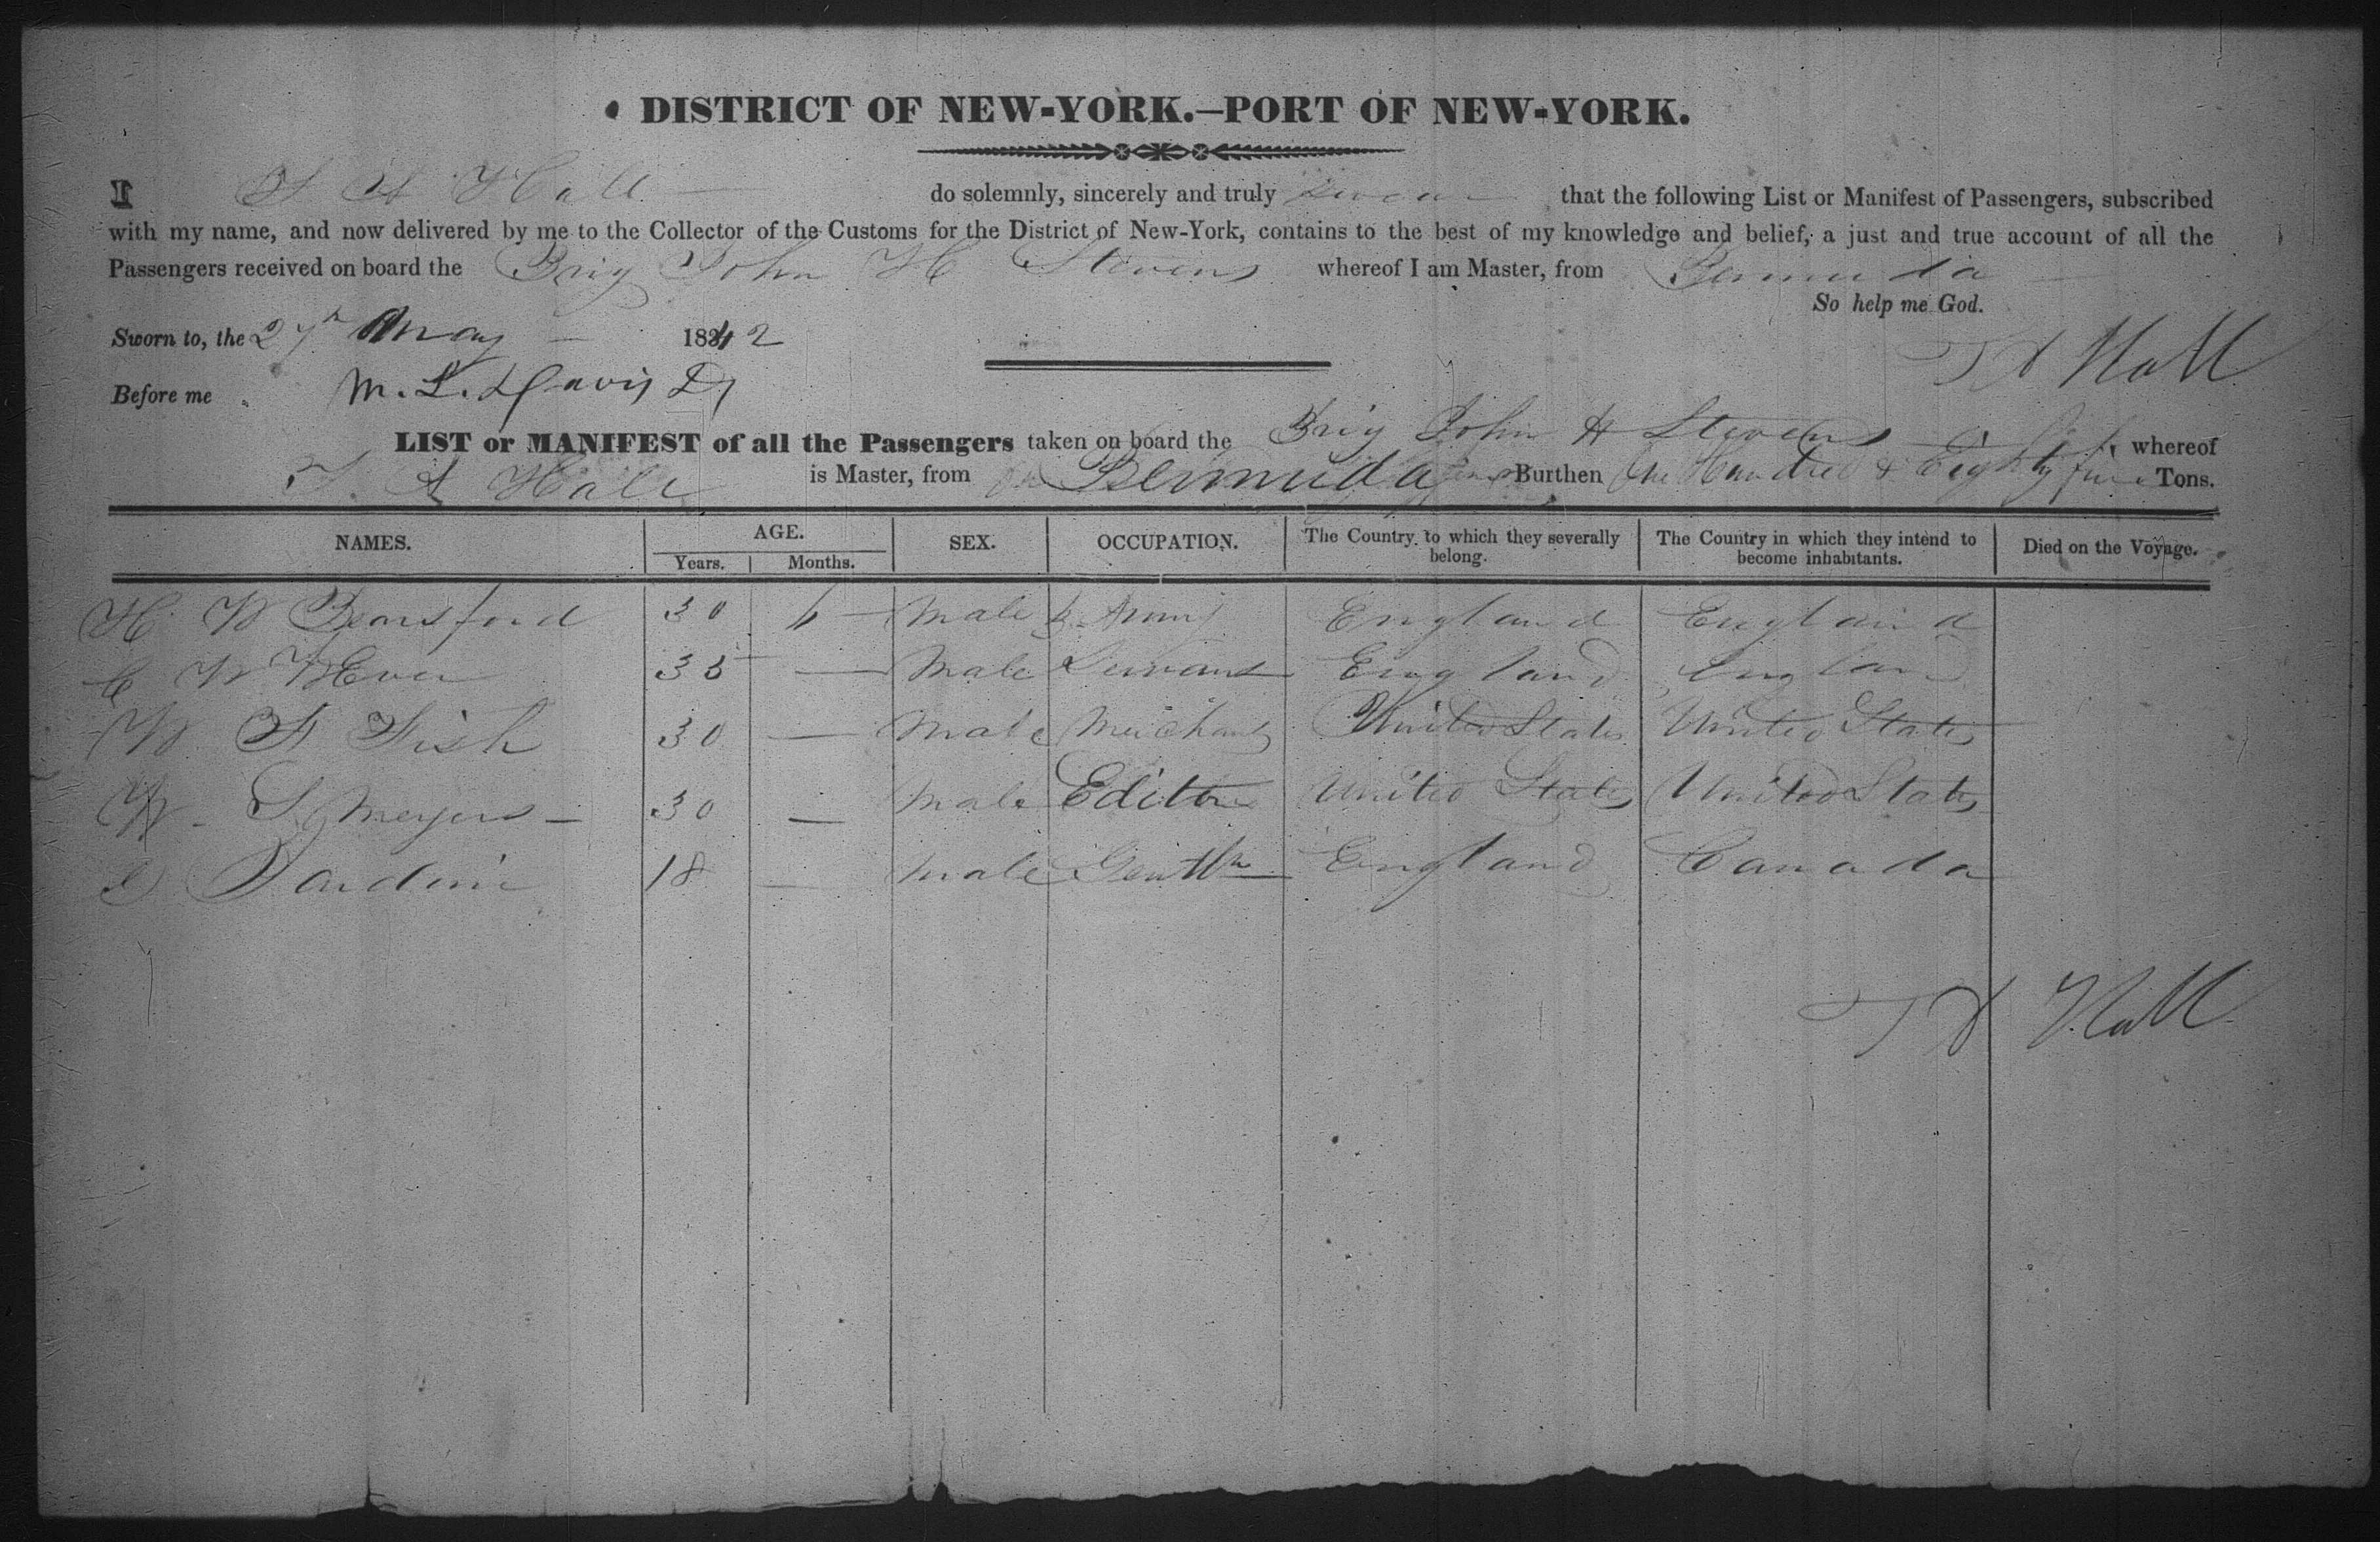 DISTRICT OF NEW-YORK.—PORT OF NEW-YORK.
I T A Hall do solemnly, sincerely and truly swear that the following List or Manifest of Passengers, subscribed
with my name, and now delivered by me to the Collector of the Customs for the District of New-York, contains to the best of my knowledge and belief, a just and true account of all the
Passengers received on board the Brig John H Stevens whereof I am Master, from Bermuda
So help me God.
Sworn to, the 27th May 1842
T A Hall
Before me M. L. Davis
LIST or MANIFEST of all the Passengers taken on board the Brig John H Stevens whereof
T. A Hall is Master, from Bermuda Burthen One Hundred & Eighty five Tons.
NAMES. AGE. SEX. OCCUPATION. The Country to which they severally belong. The Country in which they intend to become inhabitants. Died on the Voyage.
Years. Months.
H. W Bearsford 30 — Male Army England England
C W 35 — Male Servant England England
W F Fish 30 — Male Merchant United States United States
W. S Meyers — 30 — Male Editor United States United States
18 — Male Gentln England Canada
T A Hall